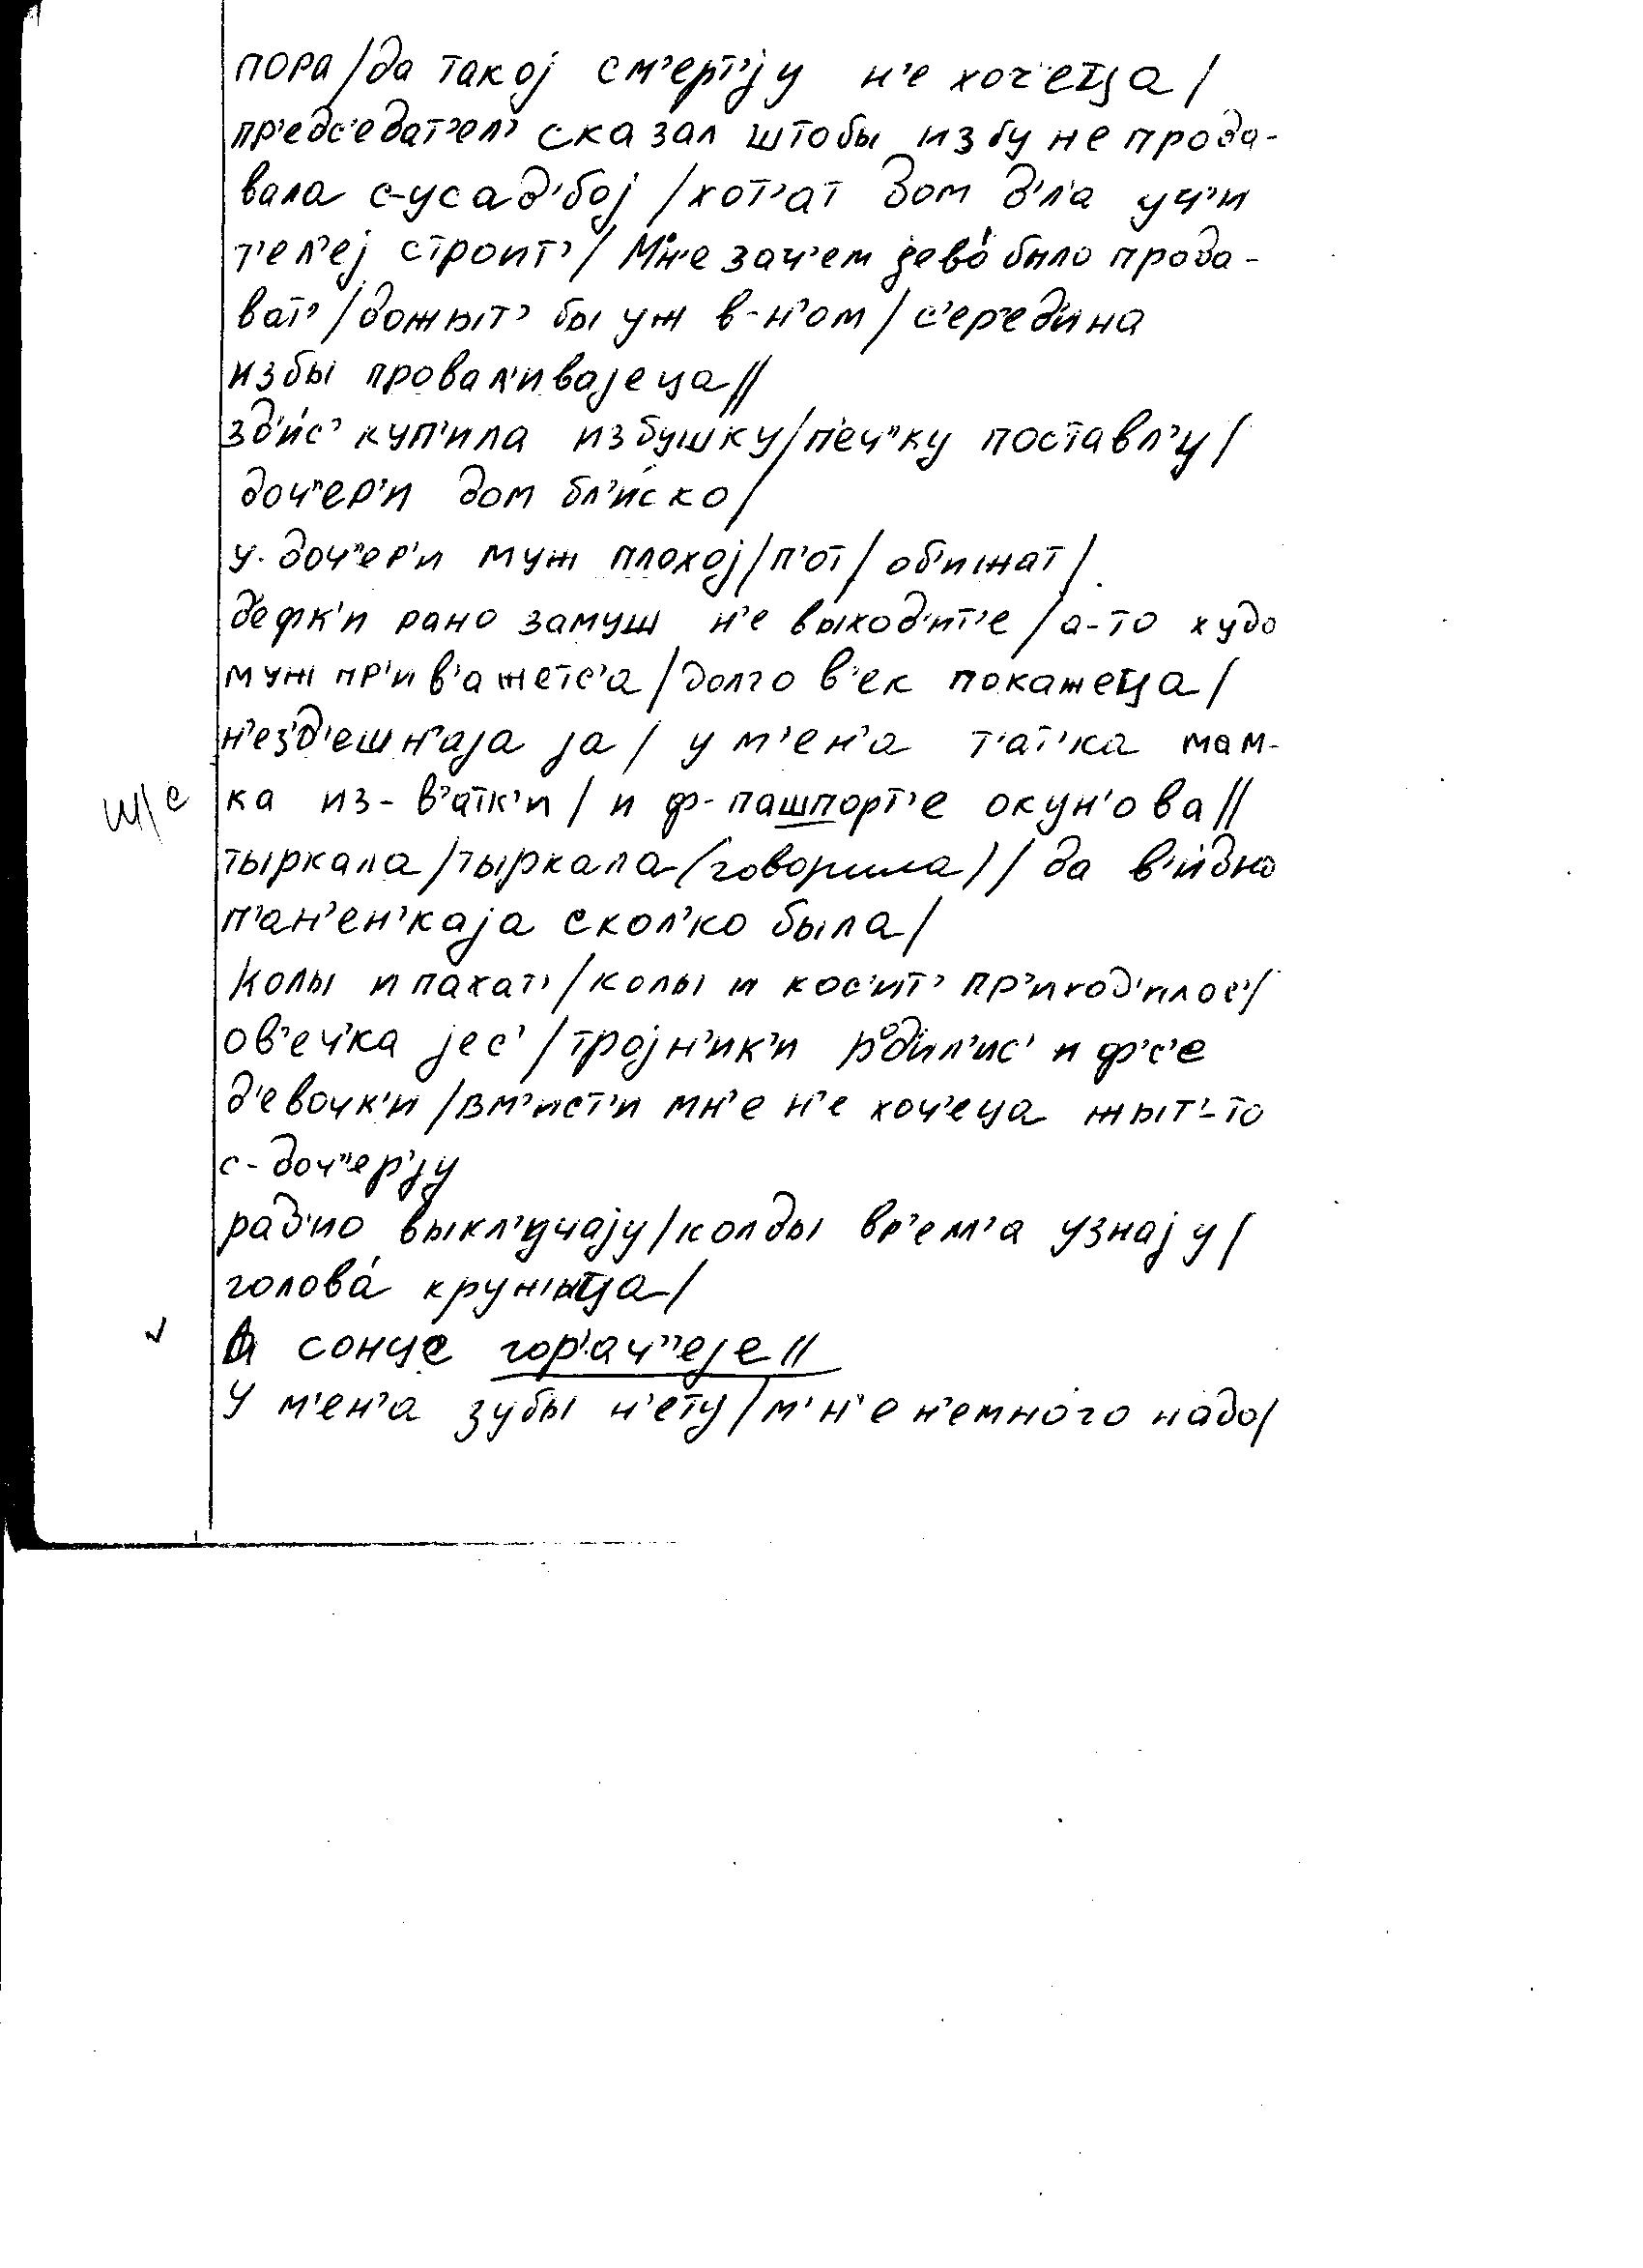 пора/да такоj см'ерт'jу н'е хоч'етца/
пр'едс'едат'ел' сказал штобы избу не прода-
вала с-усад'боj /хот'ат дом дл'а уч'и
т'ел'еj строит'/ Мн'е зач'ем jево́ было прода-
ват' /дожыт' бы уж в-н'ом/ с'ер'ед'ина
избы провал'иваjеца//
зд'ис' куп'ила избушку/п'еч"ку поставл'у/
доч"ер'и дом бл'иско/
у-доч"ер'и муж плохоj/п'от/ об'ижат/
д'ефк'и рано замуш н'е выход'ит'е /а-то худо
муж пр'ив'ажетс'а/долго в'ек покажетца/
н'ез'д'ешн'аjа jа/ у м'ен'а т'ат'ка мам-
ш/с ка из-в'атк'и/ и ф-пашпорт'е окун'ова//
тыркала/тыркала (говорила)/ да в'идно
п'ан'ен'каjа скол'ко была/
колы и пахат'/колы и кос'ит' пр'иход'илос'/
ов'еч'ка jес'/троjн'ик'и род'ил'ис' и ф'с'е
д'евочк'и/вм'ист'и мн'е н'е хоч'еца жыт'-то
с-доч"ер'jу
рад'ио выкл'учаjу/колды вр'ем'а узнаjу/
голова́ кружытца/
✓ А сонце гор'ач"еjе//
У м'ен'а зубы н'ету/м'н'е н'емного надо/